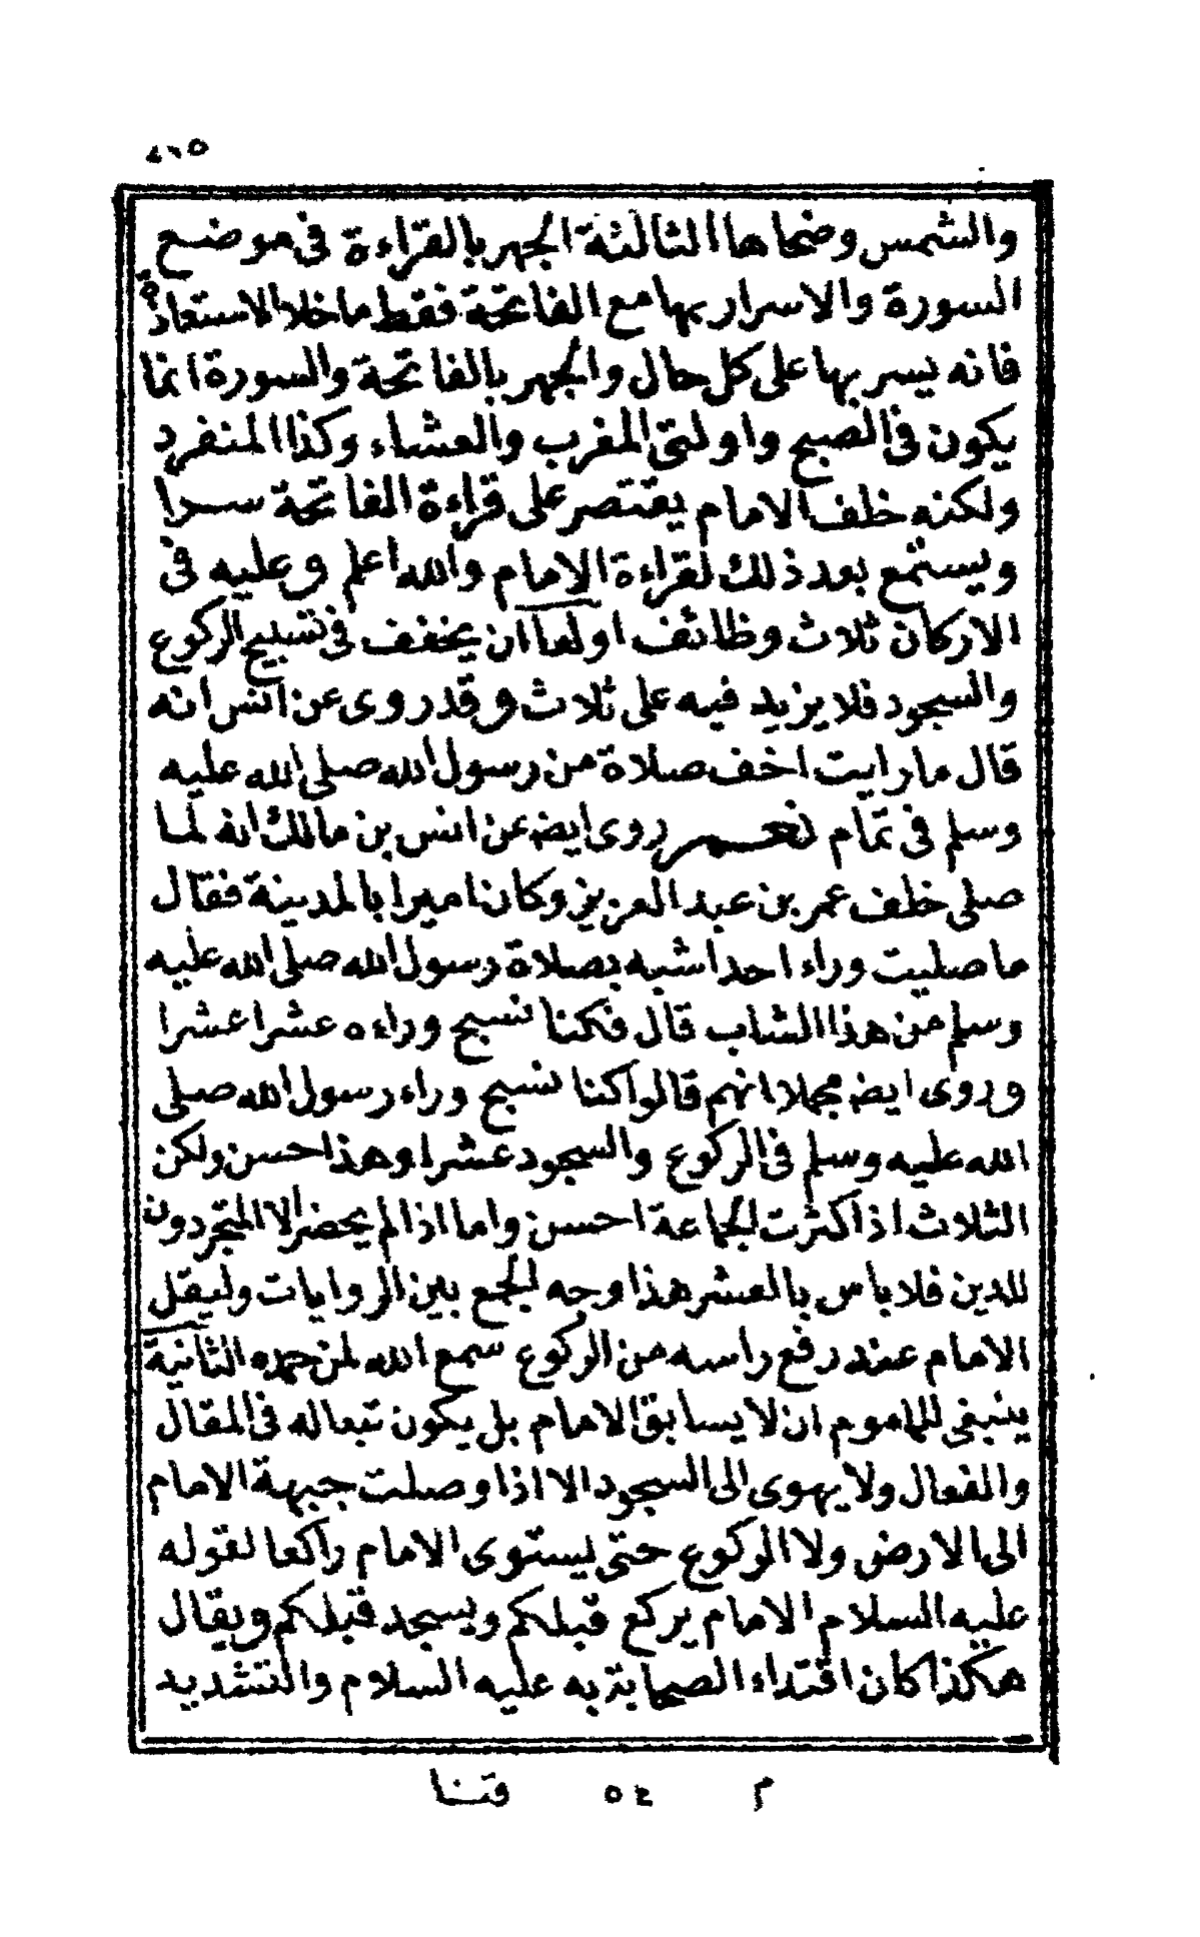 ٤١٥
والشمس وضحاها الثالثة الجهر بالقراءة في موضع
السورة والاسرار بها مع الفاتحة فقط ما خلا الاستعاذة
فانه يسر بها على كل حال والجهر بالفاتحة والسورة انما
يكون في الصبح واولتي المغرب والعشاء وكذا المنفرد
ولكنه خلف الامام يقتصر على قراءة الفاتحة سرا
ويستمع بعد ذلك لقراءة الامام والله اعلم وعليه في
الاركان ثلاث وظائف اولها ان يخفف في تسبيح الركوع
والسجود فلا يزيد فيه على ثلاث وقد روى عن انس انه
قال ما رايت اخف صلاة من رسول الله صلى الله عليه
وسلم في تمام نعم روى ايضه عن انس بن مالك انه لما
صلى خلف عمر بن عبد العزيز وكان اميرا بالمدينة فقال
ما صليت وراء احد اشبه بصلاة رسول الله صلى الله عليه
وسلم من هذا الشاب قال فكنا نسبح وراءه عشرا عشرا
وروى ايضه مجملا انهم قالوا كنا نسبح وراء رسول الله صلى
الله عليه وسلم في الركوع والسجود عشرا وهذا حسن ولكن
الثلاث اذا كثرت الجماعة احسن واما اذا لم يحضر الا المتجردون
للدين فلا باس بالعشر هذا وجه الجمع بين الروايات وليقل
الامام عند رفع راسه من الركوع سمع الله لمن حمده الثانية
ينبغي للماموم ان لا يسابق الامام بل يكون تبعا له في المقال
والفعال ولا يهوى الى السجود الا اذا وصلت جبهة الامام
الى الارض ولا الركوع حتى يستوى الامام راكعا لقوله
عليه السلام الامام يركع قبلكم ويسجد قبلكم ويقال
هكذا كان اقتداء الصحابة به عليه السلام والتشديد
م ٥٤ قتنا